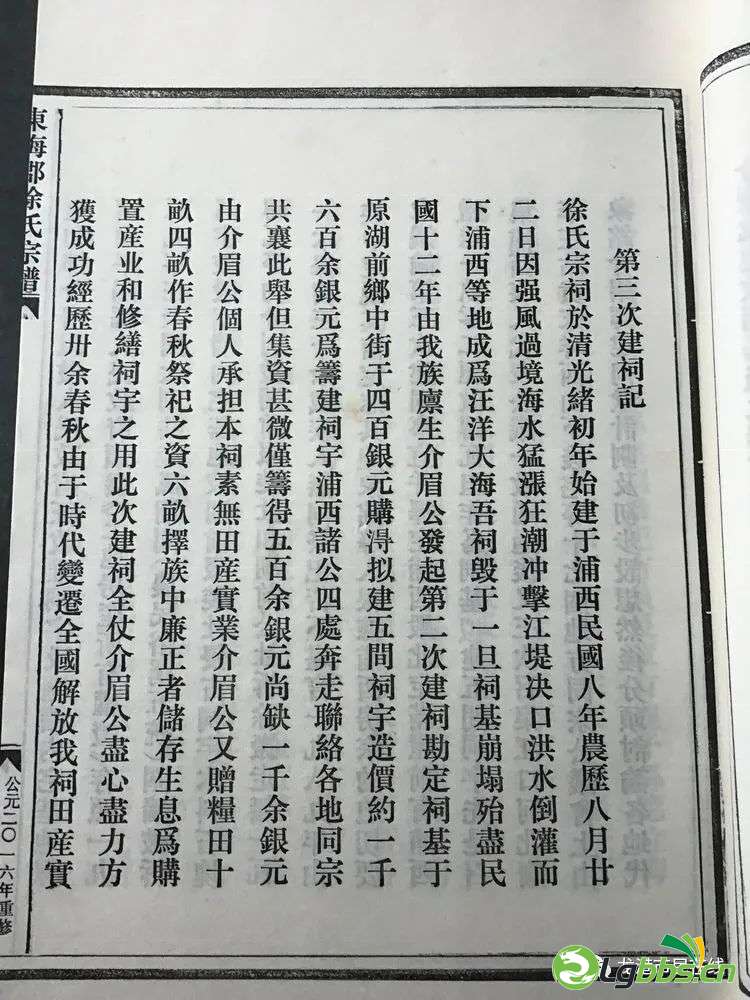 第三次建祠記
徐氏宗祠於清光緒初年始建于浦西民國八年農歷八月廿
二日因强風過境海水猛漲狂潮冲擊江堤决口洪水倒灌而
下浦西等地成爲汪洋大海吾祠毁于一旦祠基崩塌殆盡民
國十二年由我族廪生介眉公發起第二次建祠勘定祠基于
原湖前鄉中街于四百銀元購淂拟建五間祠宇造價約一千
六百余銀元爲籌建祠宇浦西諸公四處奔走聯絡各地同宗
共襄此舉但集資甚微僅籌得五百余銀元尚缺一千余銀元
由介眉公個人承担本祠素無田産實業介眉公又贈糧田十
畝四畝作春秋祭祀之資六畝擇族中廉正者儲存生息爲購
置産業和修繕祠宇之用此次建祠全仗介眉公盡心盡力方
獲成功經歷卅余春秋由于時代變遷全國解放我祠田産實
東海郡徐氏宗譜
公元二〇一六年重修
lgbbs.cn